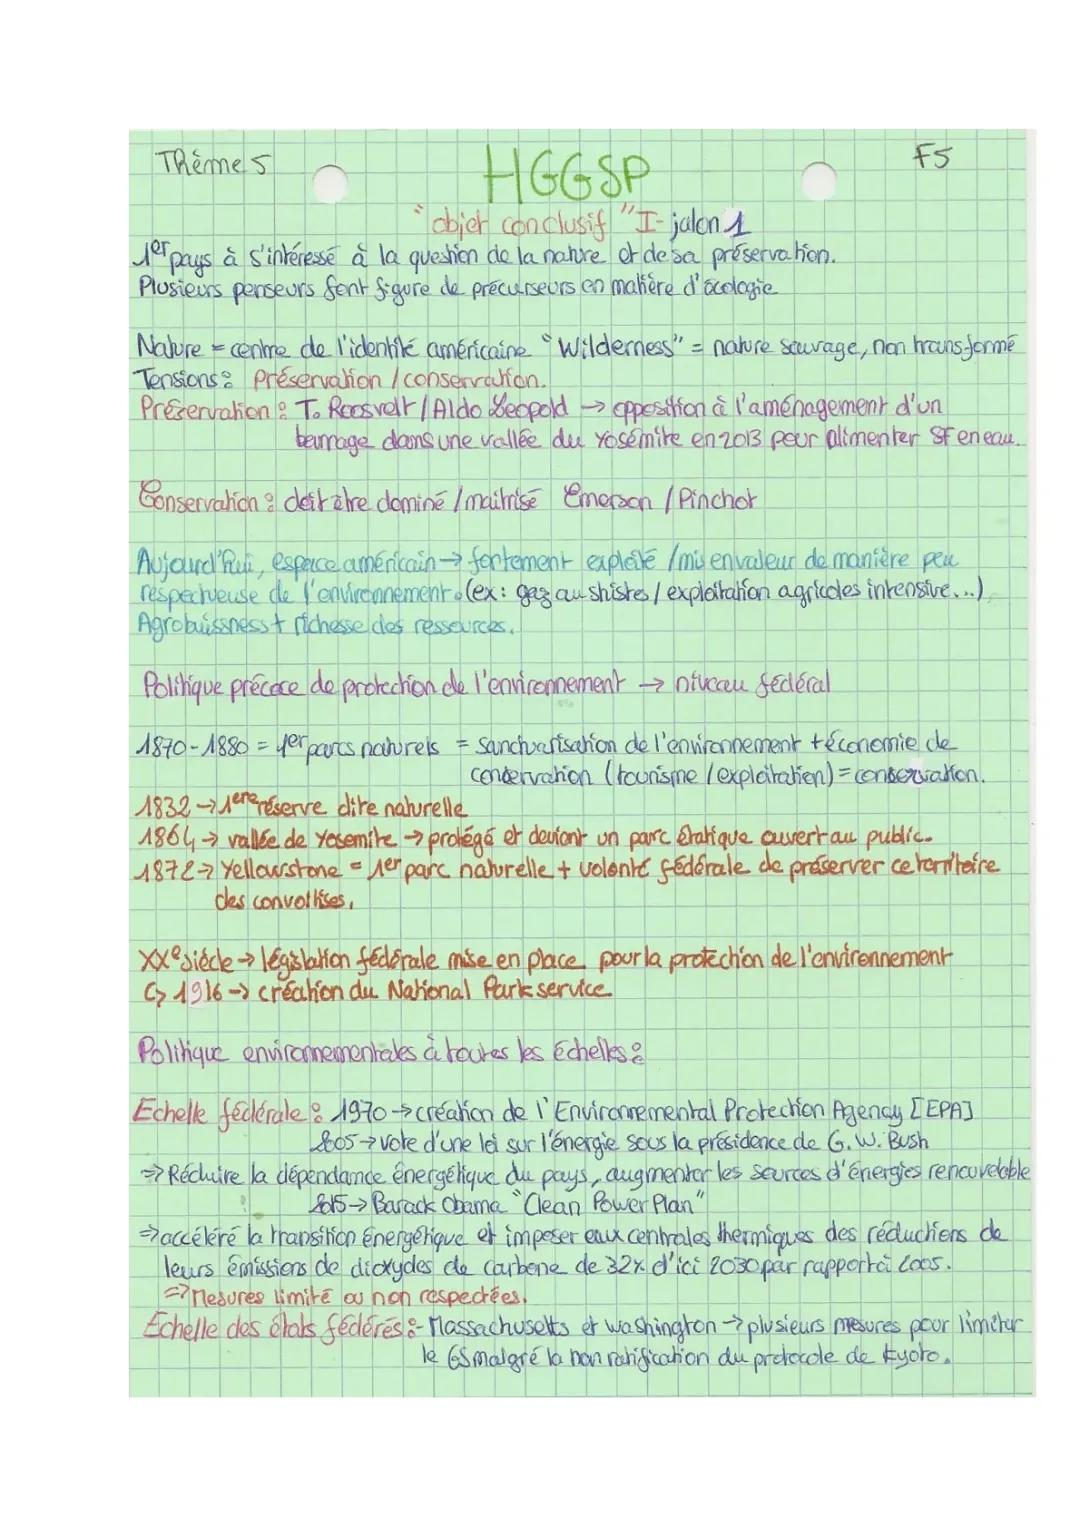 Thème 5
HGGSP
F5
"objet conclusif" I- jalon 1
1er pays à s'intéressé à la question de la nature et de sa préservation.
Plusieurs penseurs font figure de précurseurs en matière d'écologie
Nature = centre de l'identité américaine "Wilderness" = nature sauvage, non transformé
Tensions : Préservation / conservation.
Préservation : T. Roosvelt / Aldo Leopold → opposition à l'aménagement d'un
barrage dans une vallée du Yosémite en 2013 pour alimenter SF en eau.
Conservation : doit être dominé / maitrisé Emerson / Pinchot
Aujourd'hui, espace américain → fortement exploité / mis en valeur de manière peu
respectueuse de l'environnement. (ex: gaz au shistes / exploitation agricoles intensive...)
Agrobuissness + richesse des ressources.
Politique précoce de protection de l'environnement → niveau fédéral
1870-1880 = 1er parcs naturels = sanctuarisation de l'environnement + économie de
conservation (tourisme / exploitation) = conservation.
1832 → 1ere réserve dite naturelle
1864 → vallée de Yosemite → protégé et devient un parc étatique ouvert au public.
1872 → Yellowstone = 1er parc naturelle + volonté fédérale de préserver ce territoire
des convoitises.
XXe siècle → législation fédérale mise en place pour la protection de l'environnement
↳ 1916 → création du National Park service.
Politique environnementales à toutes les échelles :
Echelle fédérale : 1970 → création de l'Environnemental Protection Agency [EPA]
2005 → vote d'une loi sur l'énergie sous la présidence de G. W. Bush
⇒ Réduire la dépendance énergétique du pays, augmenter les sources d'énergies renouvelable
2015 → Barack Obama "Clean Power Plan"
⇒ accéléré la transition énergétique et imposer aux centrales thermiques des réductions de
leurs émissions de dioxydes de carbone de 32% d'ici 2030 par rapport à 2005.
⇒ Mesures limité ou non respectées.
Echelle des états fédérés : Massachusetts et Washington → plusieurs mesures pour limiter
le GS malgré la non ratification du protocole de Kyoto.